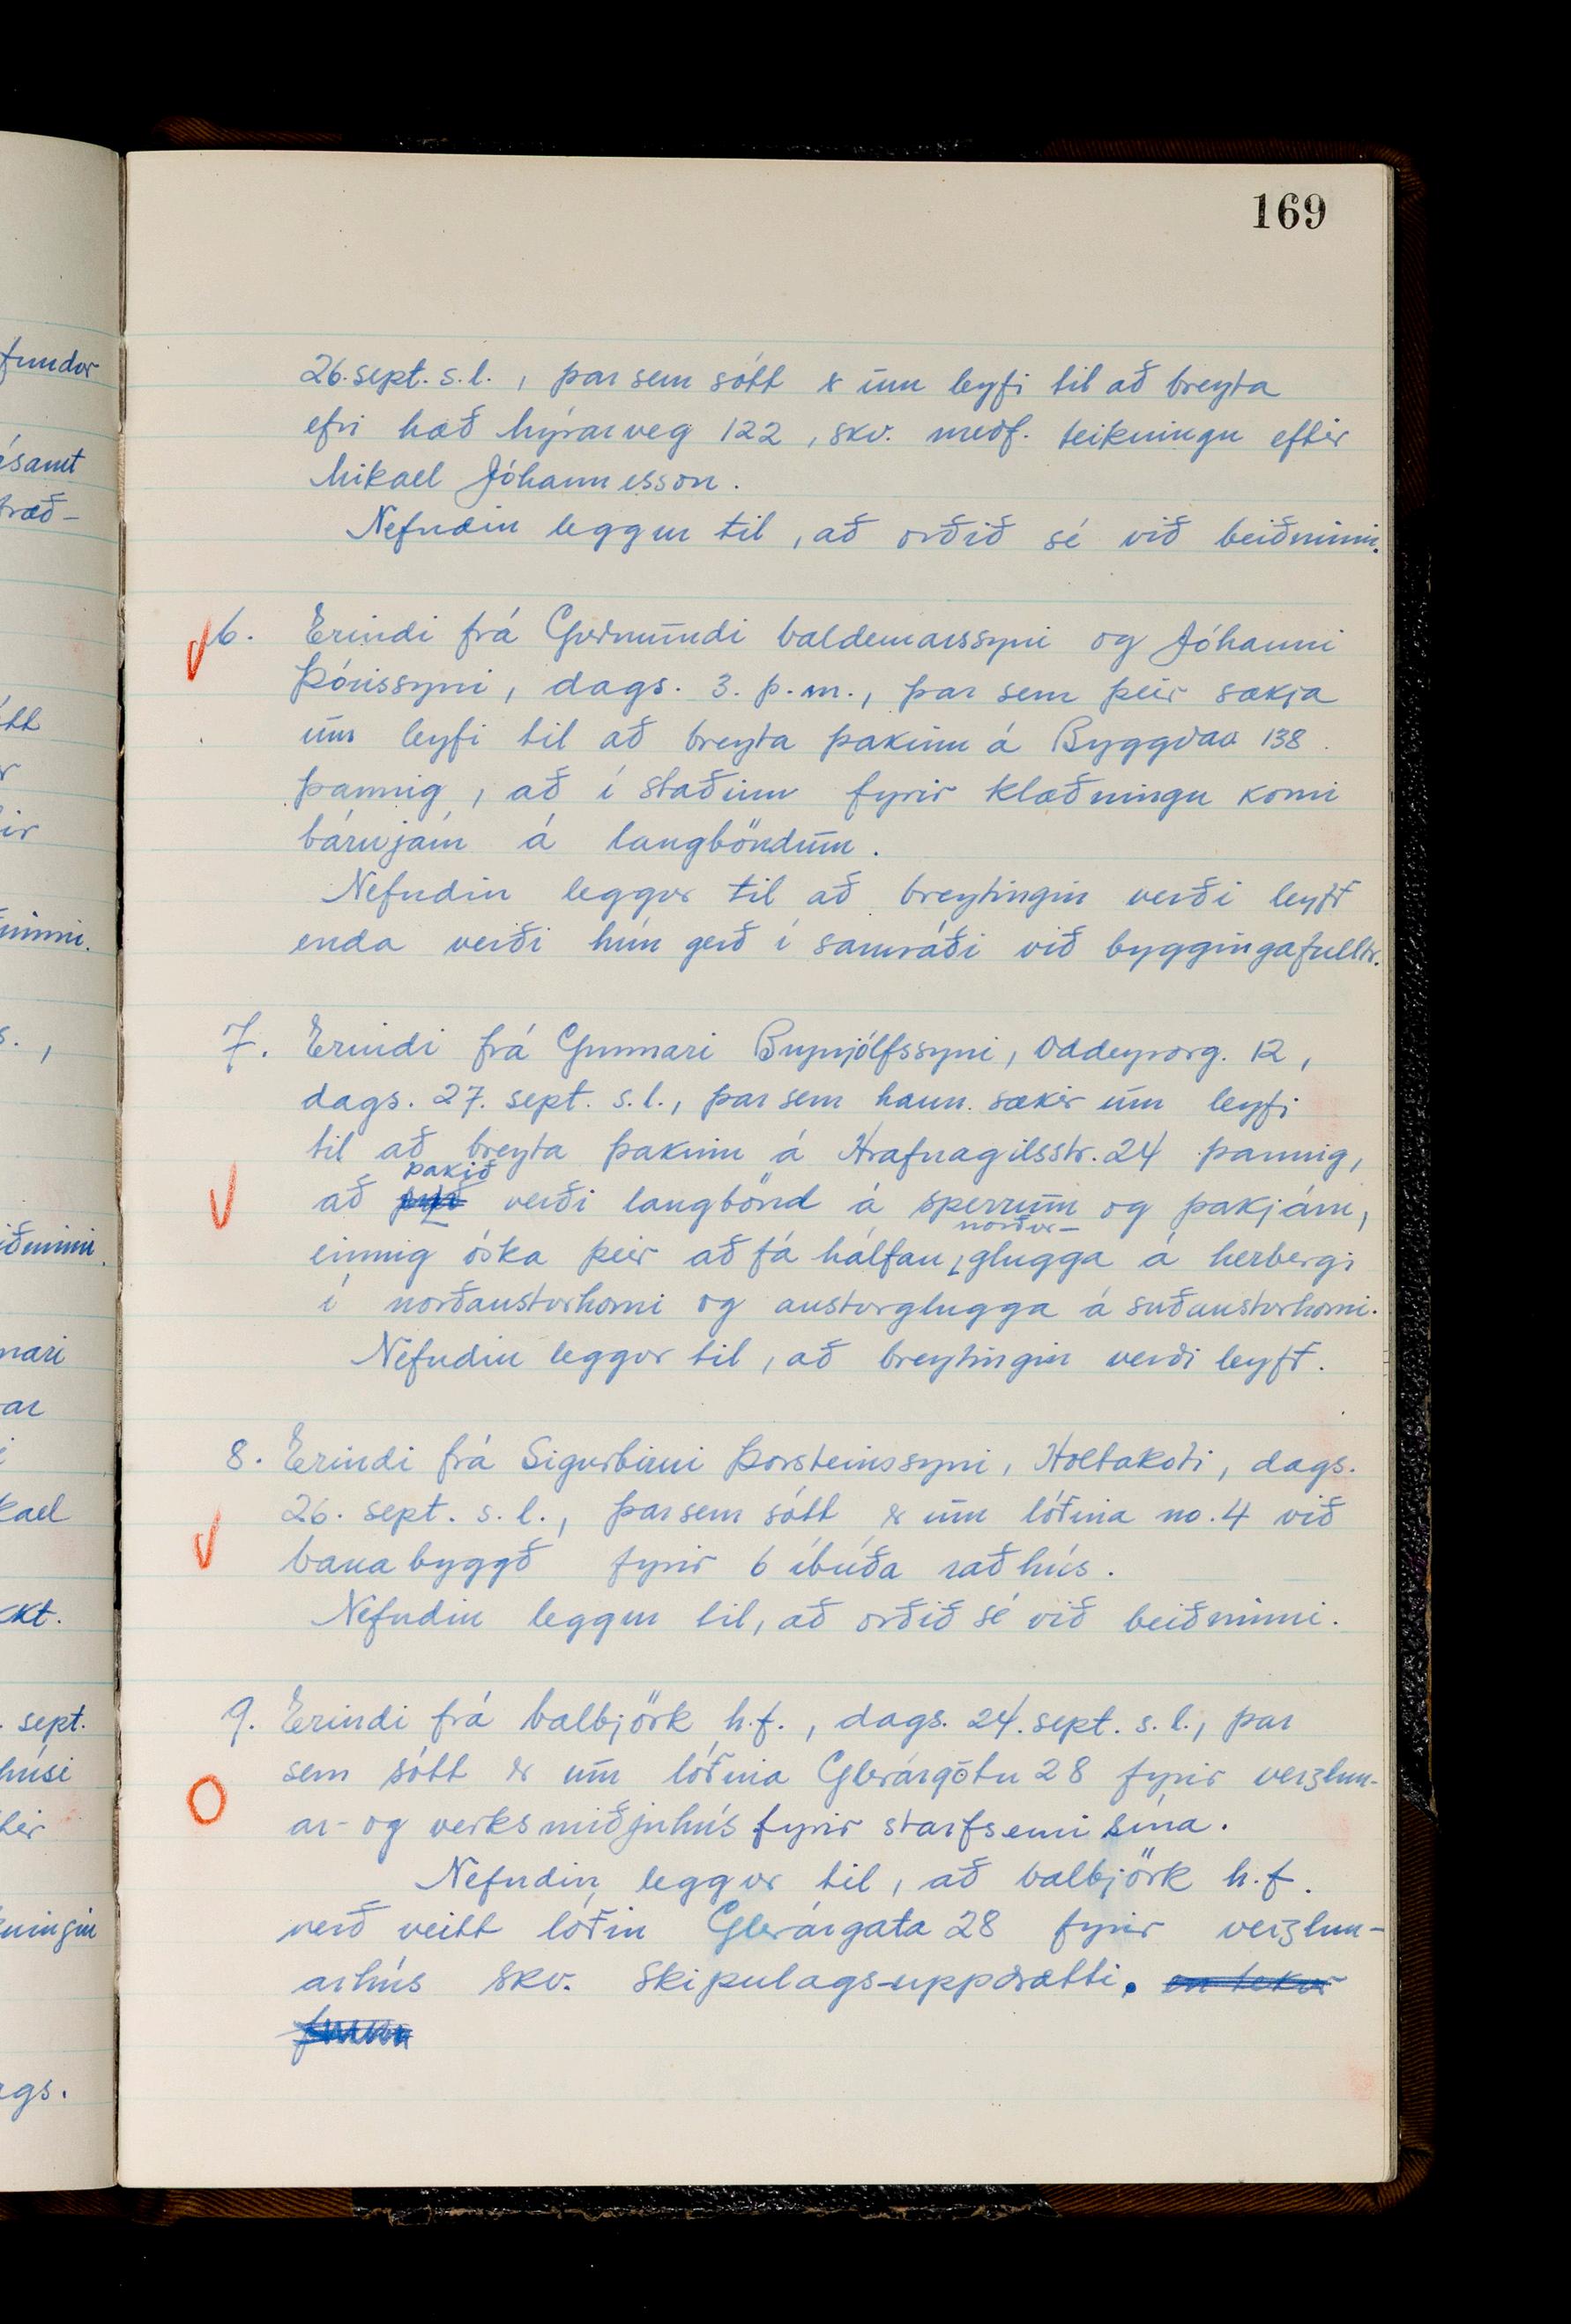 169
26. sept. s.l., þar sem sótt er um leyfi til að breyta
efri hæð Mýrarveg 122, skv. meðf. teikningu eftir
Mikael Jóhannesson.
Nefndin leggur til, að orðið sé við beiðninni.
6. Erindi frá Guðmundi Valdemarssyni og Jóhanni
Þórissyni, dags. 3. þ.m., þar sem þeir sækja
um leyfi til að breyta þakinu á Byggðav 138.
þannig, að í staðinn fyrir klæðningu komi
bárujárn á langböndum.
Nefndin leggur til að breytingin verði leyft
enda verði hún gerð í samráði við byggingafulltr.
7. Erindi frá Gunnari Brynjólfssyni, Oddeyrarg. 12,
dags. 27. sept. s.l., þar sem hann sækir um leyfi
til að breyta þakinu á Hrafnagilsstr. 24 þannig,
þakið
að verði langbönd á sperrum og þakjárn,
norður-
einnig óska þeir að fá hálfan glugga á herbergi
í norðausturhorni og austurglugga á suðausturhorni.
Nefndin leggur til, að breytingin verði leyft.
8. Erindi frá Sigurbirni Þorsteinssyni, Holtakoti, dags.
26. sept. s.l., þar sem sótt er um lóðina no. 4 við
Vanabyggð fyrir 6 íbúða raðhús.
Nefndin leggur til, að orðið sé við beiðninni.
9. Erindi frá Valbjörk h.f., dags. 24. sept. s.l., þar
sem sótt er um lóðina Glerárgötu 28 fyrir verzlun-
ar- og verksmiðjuhús fyrir starfsemi sína.
Nefndin leggur til, að Valbjörk h.f.
verð veitt lóðin Glerárgata 28 fyrir verzlun-
arhús skv. skipulagsuppdrætti. en tekur
fundor
ásamt
ðinni.
iðninni.
kael
sept.
húsi